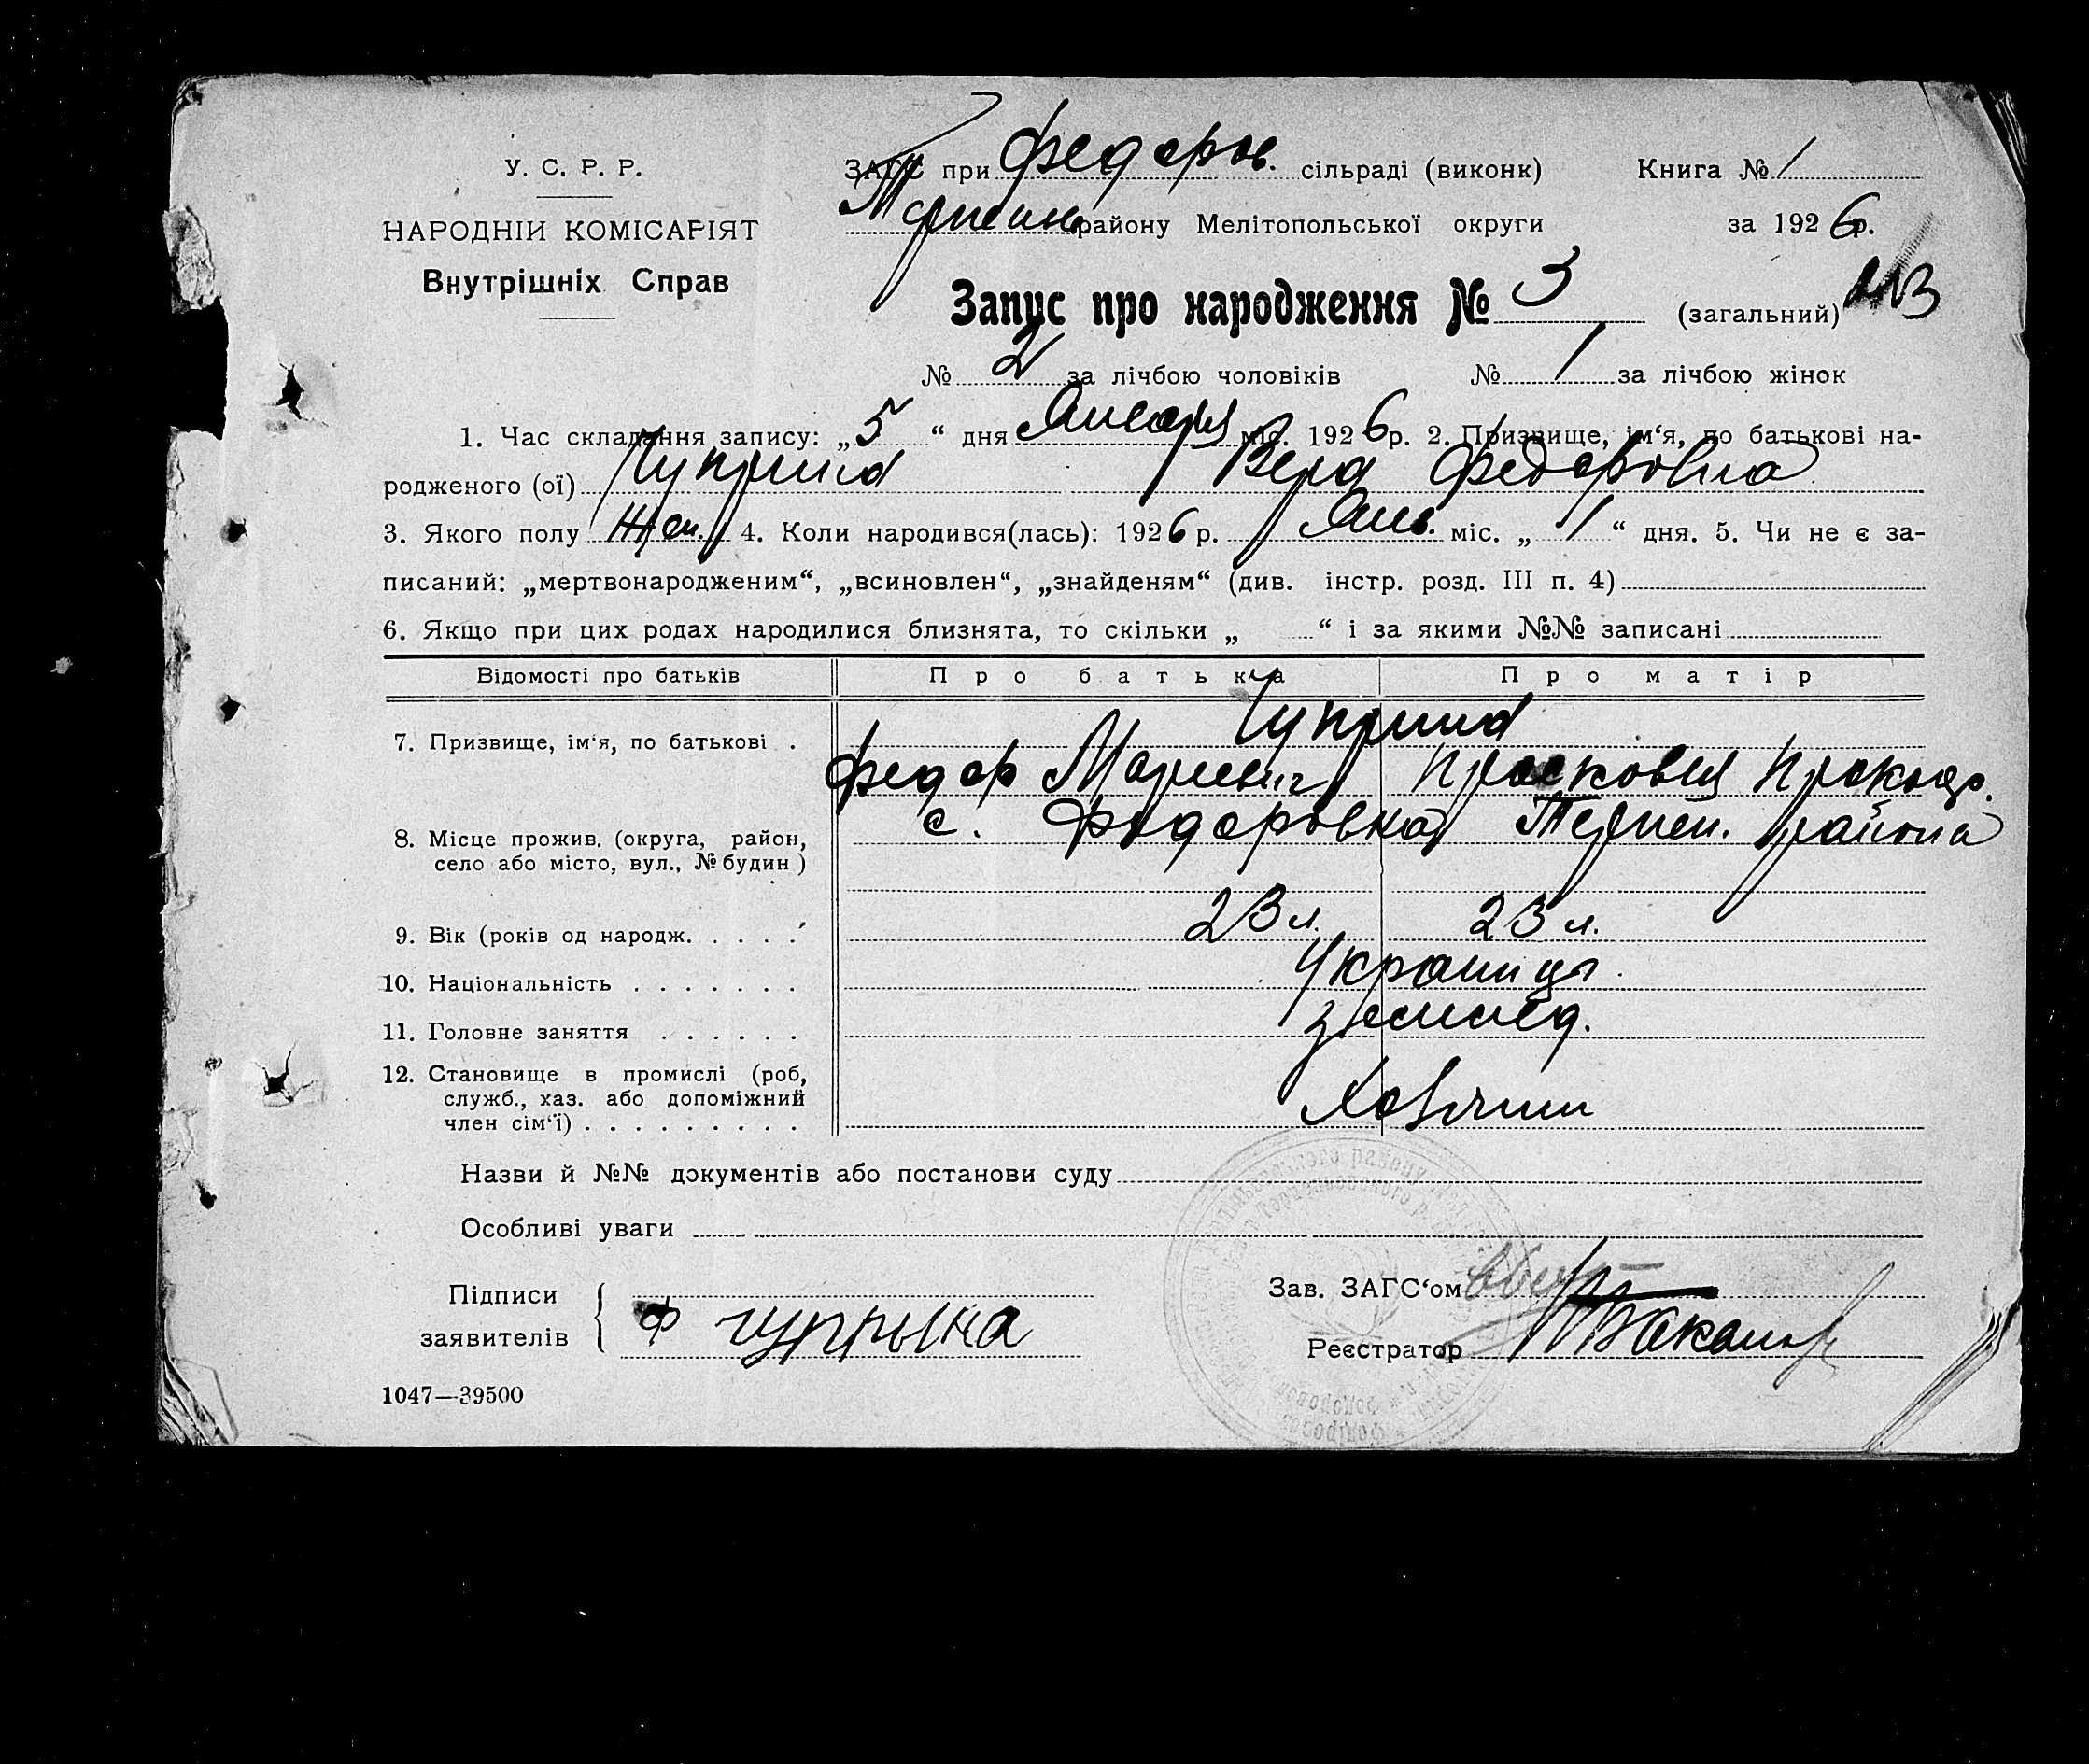 У. С. Р. Р.
НАРОДНІЙ КОМІСАРІЯТ
Внутрішніх Справ
ЗАГС при Федоров. сільраді (виконк) Книга № 1
району Мелітопольської округи за 1926 р.
Запис про народження № 3 (загальний)
№ 2 за лічбою чоловіків № 1 за лічбою жінок
1. Час складання запису: „5“ дня Января міс. 1926 р. 2. Призвище, ім‘я, по батькові на-
родженого (ої) Чуприна Вера Федоровна
3. Якого полу Жен. 4. Коли народився(лась): 1926 р. Янв. міс. „1“ дня. 5. Чи не є за-
писаний: „мертвонародженим“, „всиновлен“, „знайденям“ (див. інстр. розд. III п. 4)
6. Якщо при цих родах народилися близнята, то скільки „ “ і за якими №№ записані
Відомості про батьків Про батька Про матір
7. Призвище, ім‘я, по батькові . Чуприна
Федор Прасковия Прокоф.
8. Місце прожив. (округа, район, с. Федоровка Терпен. района
село або місто, вул., № будин )
9. Вік (років од народж. . . . . 23 л. 23 л.
10. Національність . . . . . . . Украинцы
11. Головне заняття . . . . . . землед.
12. Становище в промислі (роб,
служб., хаз. або допоміжний
член сім‘ї) . . . . . . . . .
Назви й №№ документів або постанови суду
Особливі уваги
Підписи
заявителів Ф Чупрына
Зав. ЗАГС‘ом
Реєстратор
1047—39500